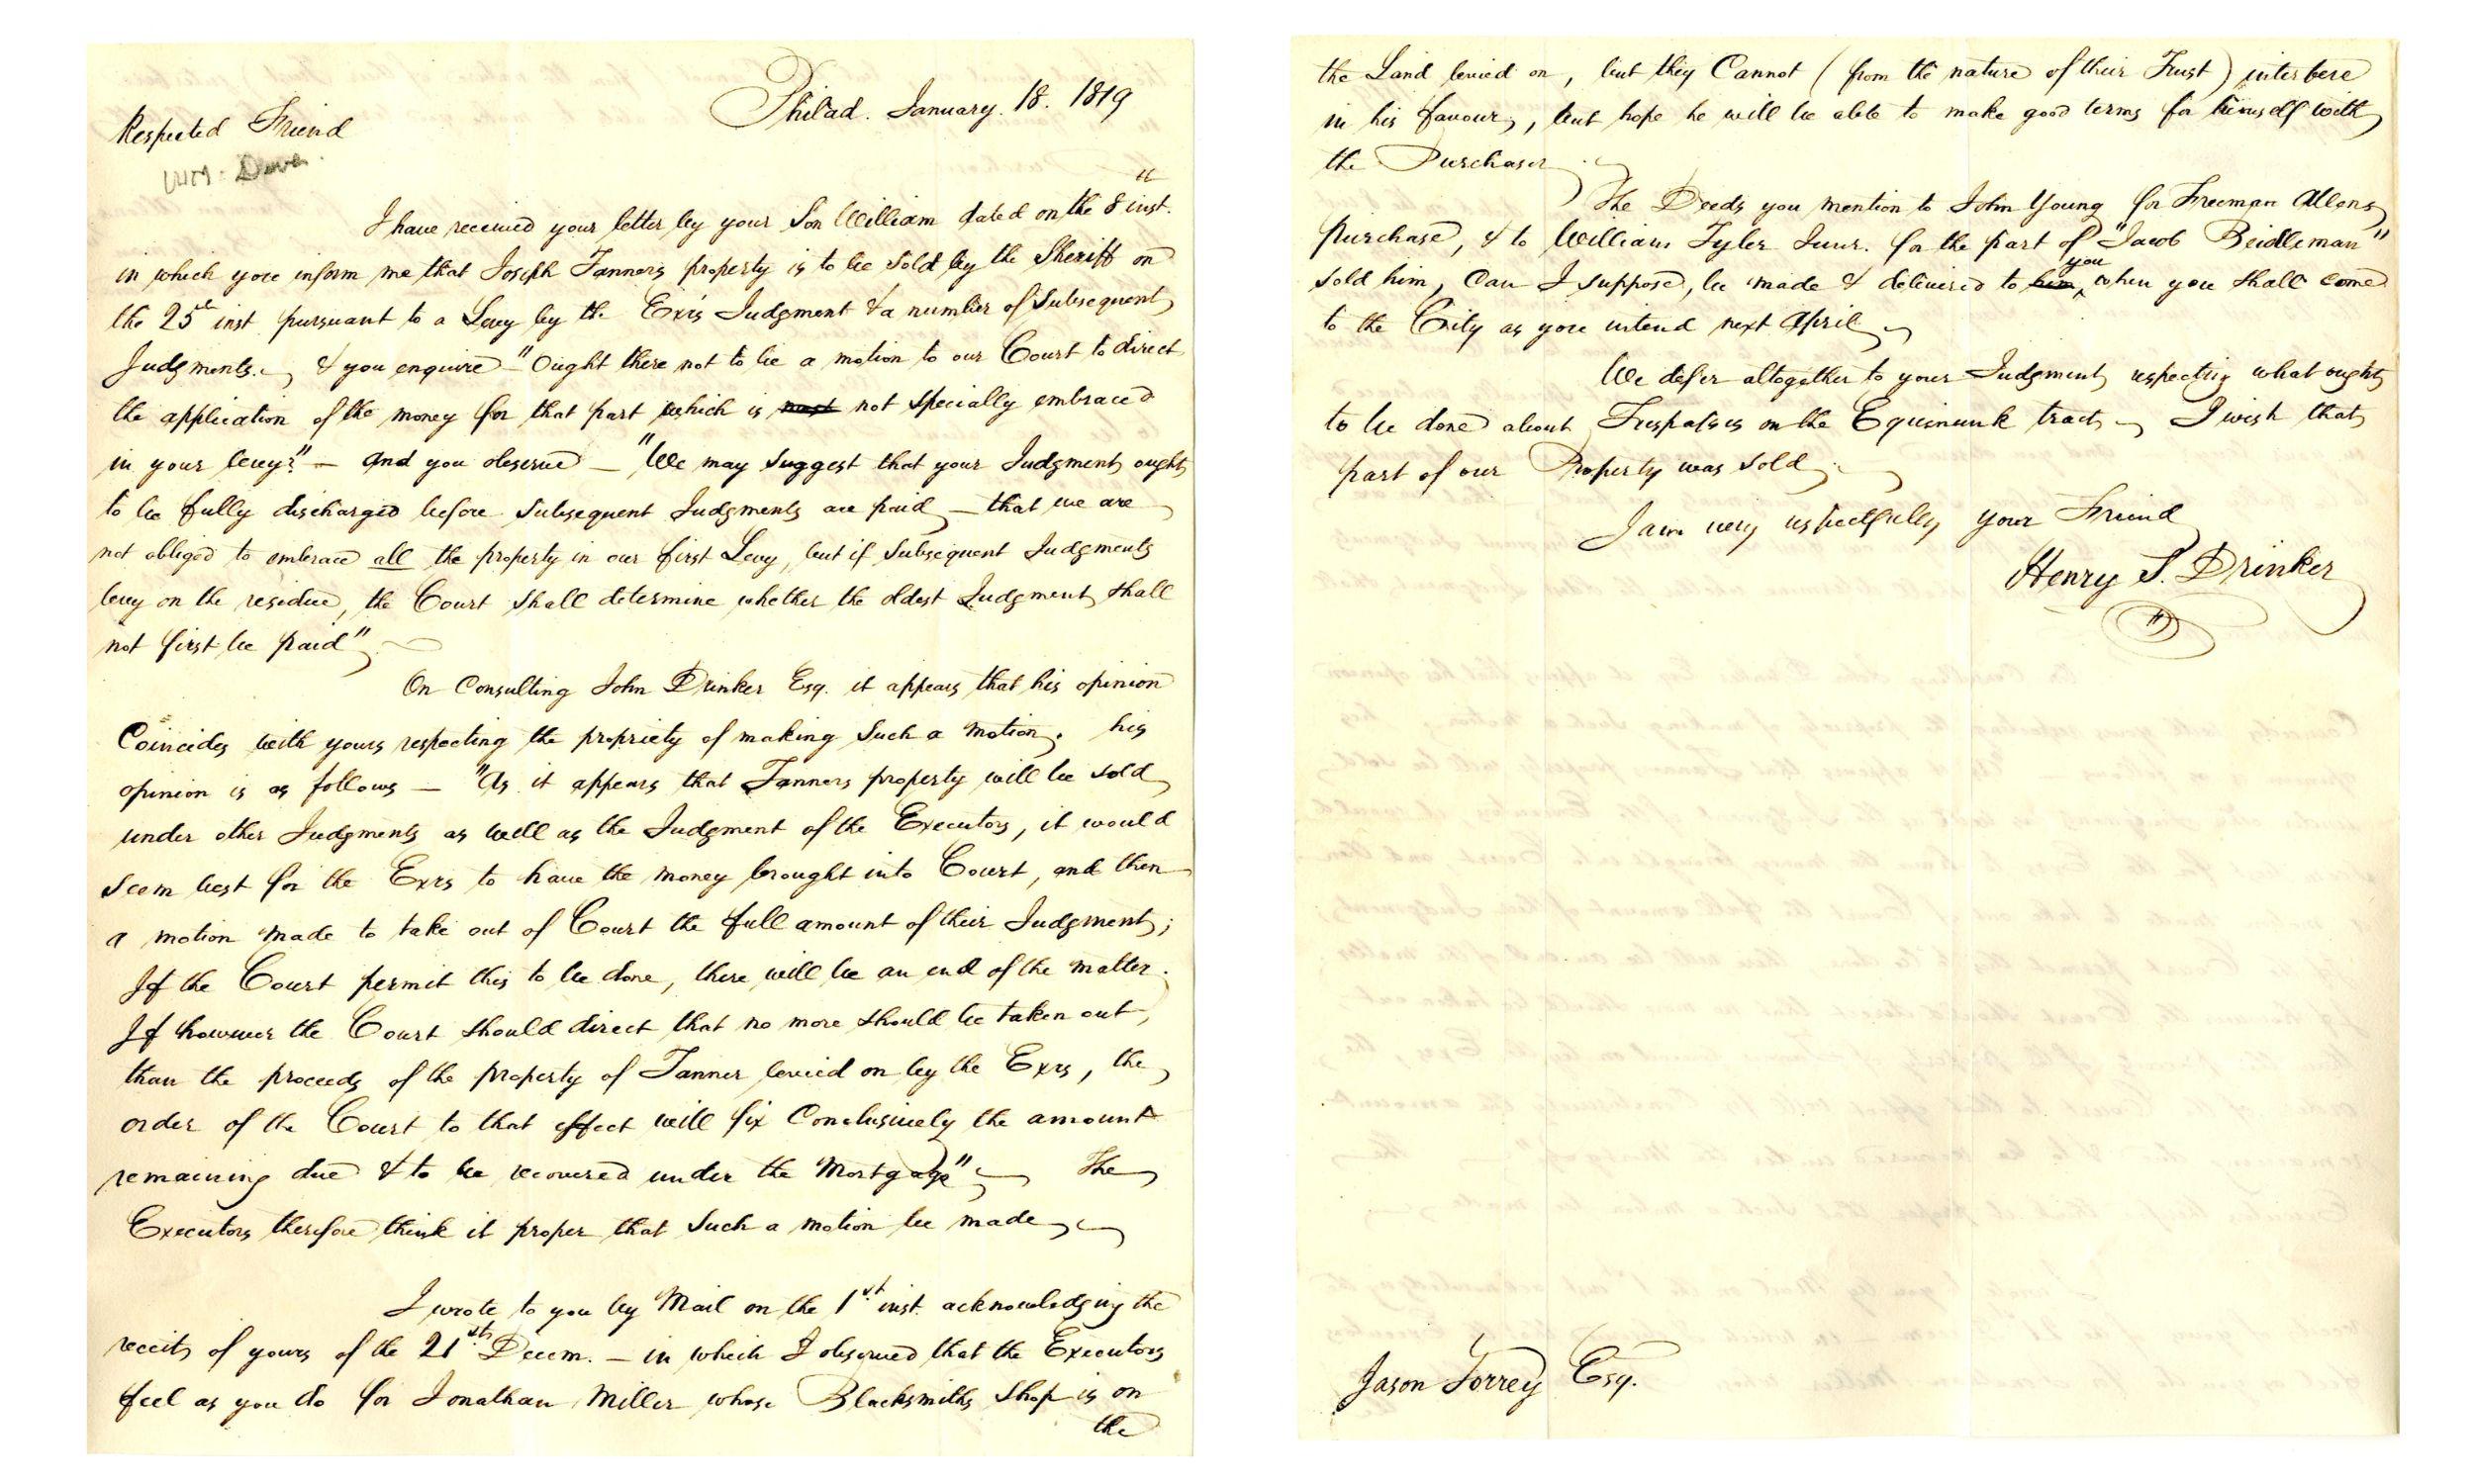 Philad. January. 18. 1819
Respected Friend
I have received your letter by your Son William dated on the 8th inst.
in which you inform me that Joseph Tanners property is to be sold by the Sheriff on
the 25th inst pursuant to a Levy by the Exrs Judgment & a number of Subsequent
Judgments. & you enquire "Ought there not to be a motion to our Court to direct
the application of the money for that part which is not specially embraced
in your levy?" — and you observe — "We may suggest that your Judgment ought
to be fully discharged before subsequent Judgments are paid — that we are
not obliged to embrace all the property in our first Levy, but if subsequent Judgments
levy on the residue, the Court shall determine whether the oldest Judgment shall
not first be paid"
On Consulting John Drinker Esq. it appears that his opinion
Coincides with yours respecting the propriety of making such a motion. his
opinion is as follows — "As it appears that Tanners property will be sold
under other Judgments as well as the Judgment of the Executors, it would
seem best for the Exrs to have the money brought into Court, and then
a motion made to take out of Court the full amount of their Judgment;
If the Court permit this to be done, there will be an end of the matter.
If however the Court should direct that no more should be taken out,
than the proceeds of the property of Tanner levied on by the Exrs, the
order of the Court to that effect will fix Conclusively the amount
remaining due & to be recovered under the Mortgage" — The
Executors therefore think it proper that such a motion be made
I wrote to you by Mail on the 1st inst. acknowledging the
receit of yours of the 21st Decem. — in which I observed that the Executors
feel as you do for Jonathan Miller whose Blacksmiths Shop is on
the
the Land levied on, but they Cannot (from the nature of their Trust) interfere
in his favour, but hope he will be able to make good terms for himself with
the Purchaser
The Deeds you mention to John Young for Freeman Allens
purchase, & to William Tyler Junr. for the part of "Jacob Beidleman"
sold him, Can I suppose, be made & delivered to him you when you shall come
to the City as you intend next April
We defer altogether to your Judgment respecting what ought
to be done about Trespasses on the Equinunk tract — I wish that
part of our Property was sold
I am very respectfully your Friend
Henry S. Drinker
Jason Torrey Esq.